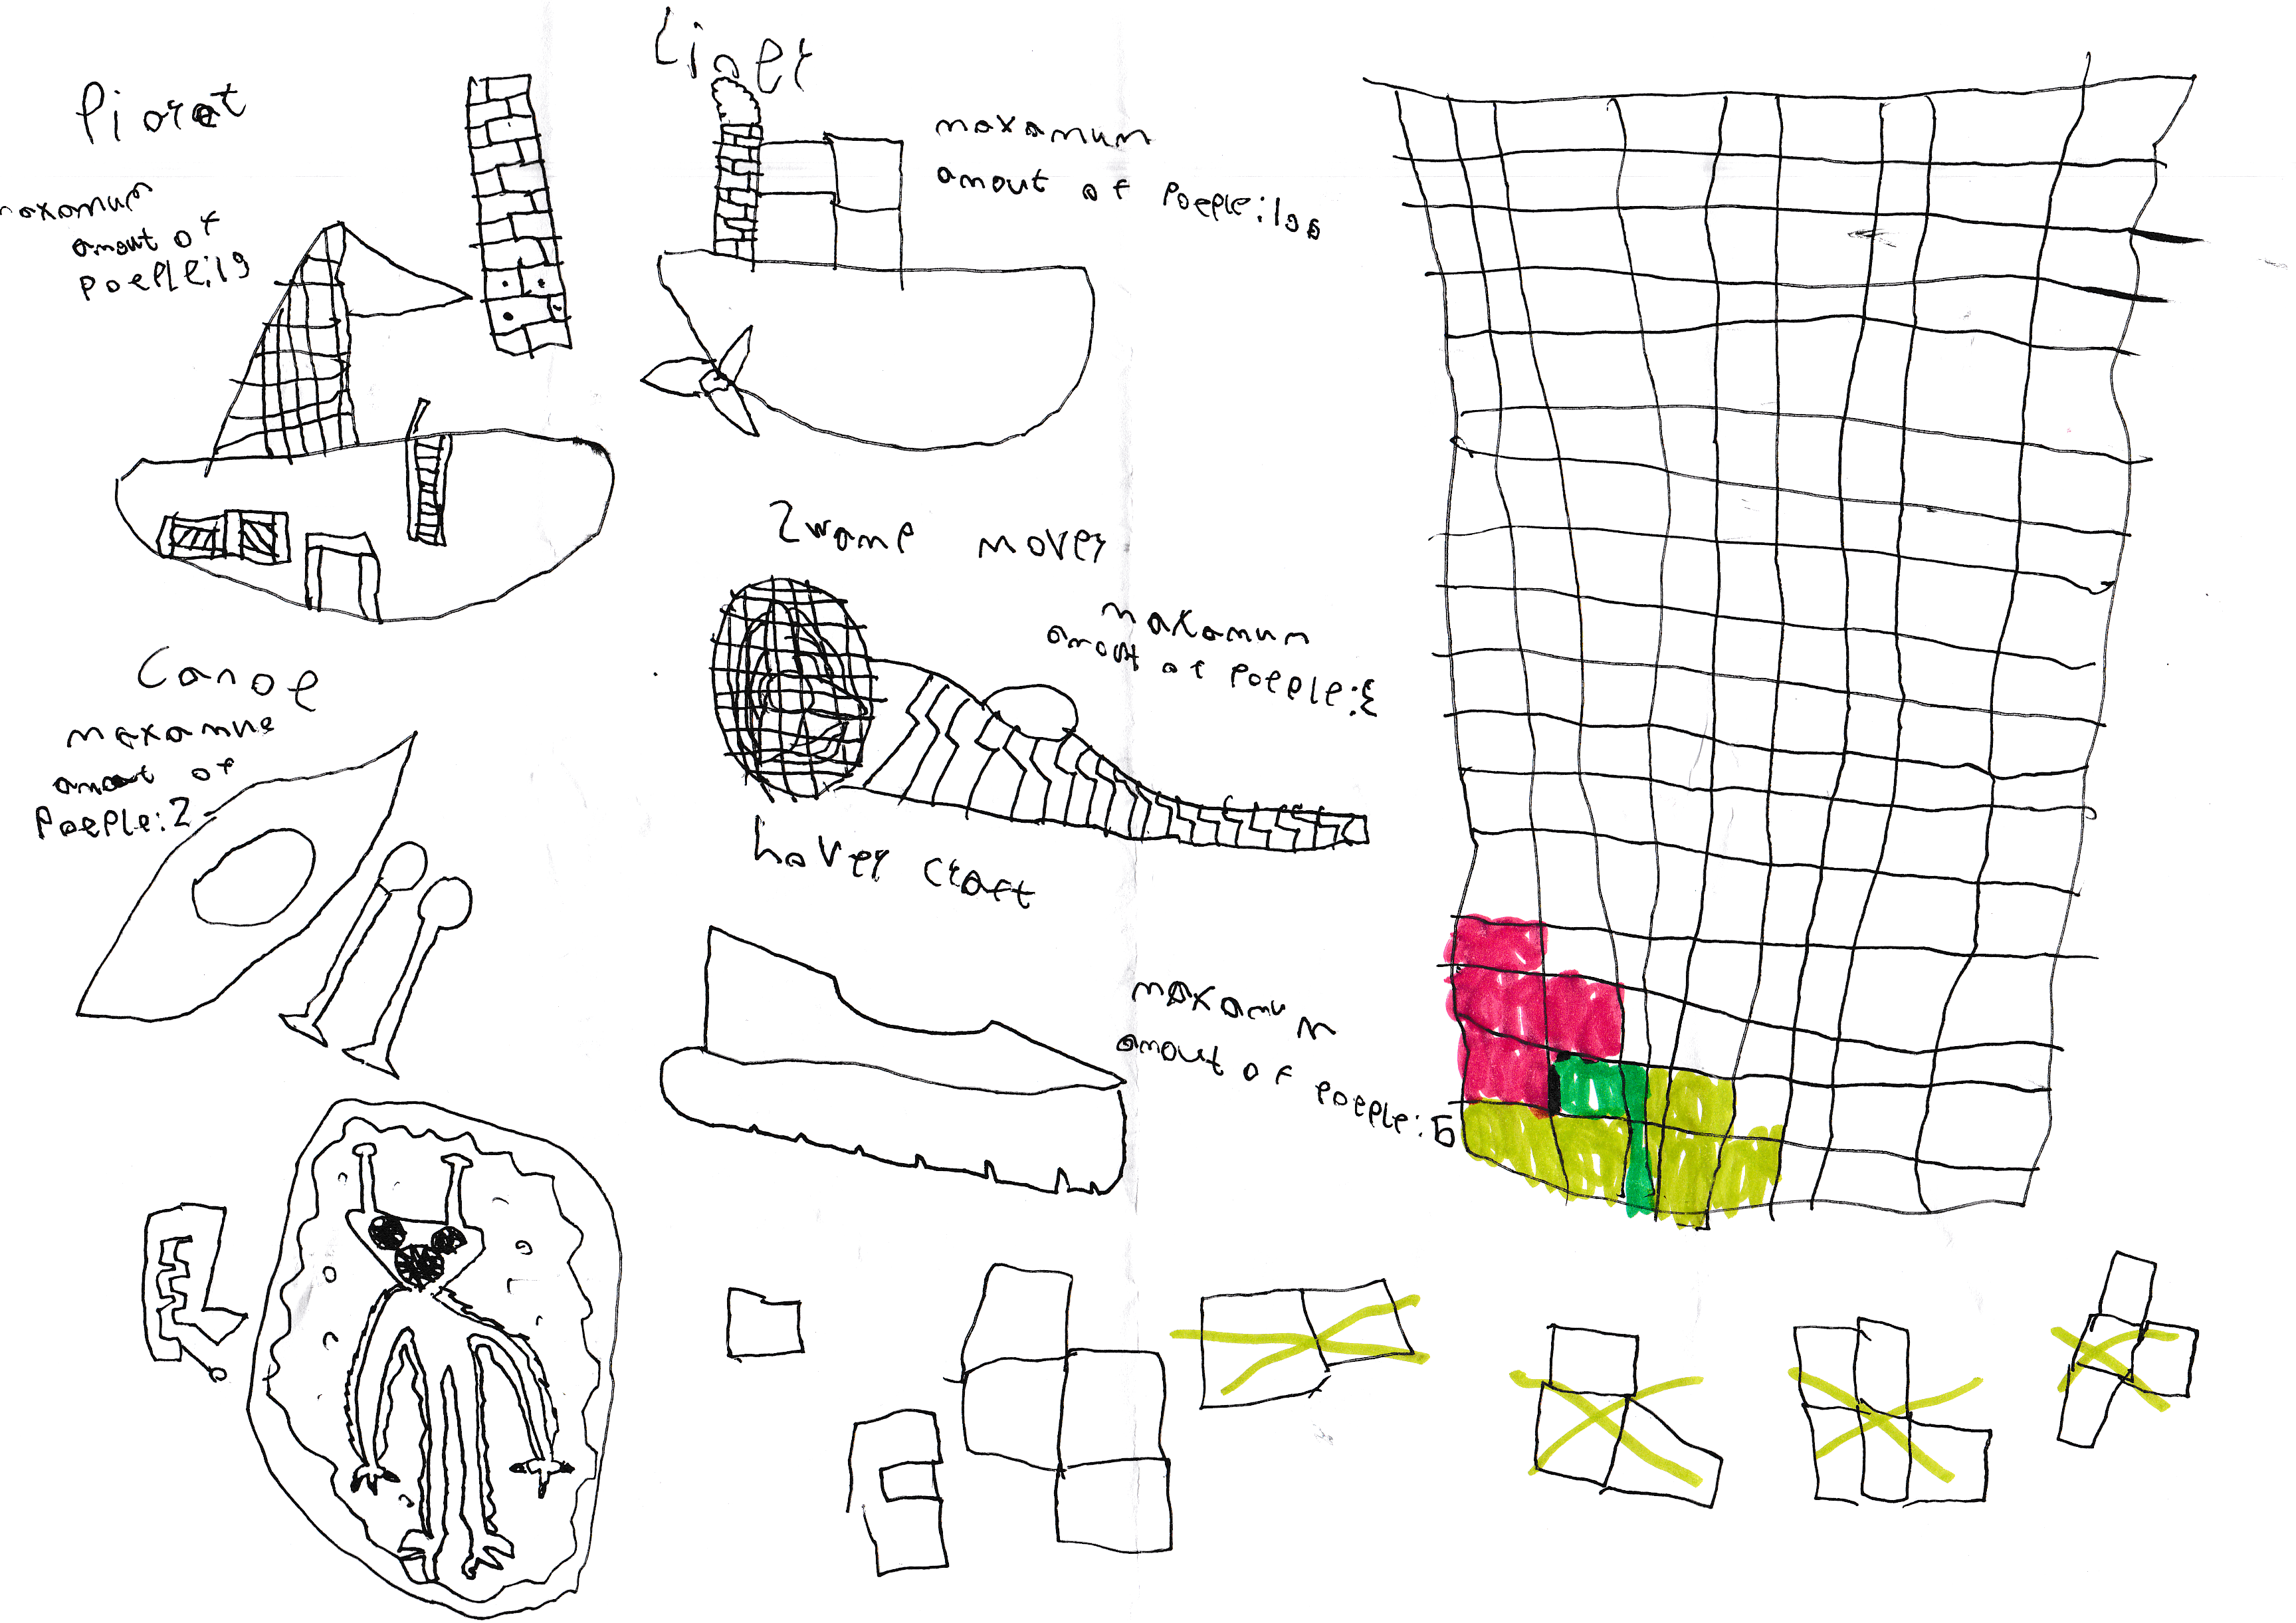 Piorat
maxamum
amout of
poeple:19
Liner
maxamum
amout of poeple:100
Canoe
maxamum
amout of
Poeple:2
Zwamp mover
maxamum
amout of poeple:
hover craft
maxamum
amout of poeple:5